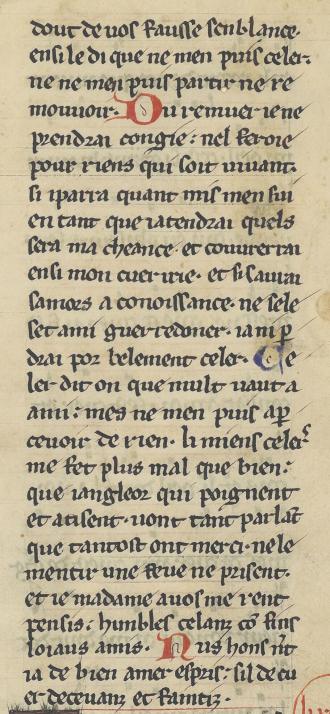 dout de uos fausse senblance.
ensi le di que ne men puis celer.
ne ne men puis partir ne re
mouuoir. Du remuer ie ne
prendrai congie: nel feroie
pour riens qui soit uiuant.
si iparra quant mis men sui
en tant que iatendrai quels
sera ma cheance. et couurerrai
ensi mon cuer irie. et si saurai
samors a conoissance. ne se le
set ami guerredoner. ia ni p
drai por belement celer. Ce
ler dit on que mult uaut a
ami: mes ne men puis ap
ceuoir de rien. li miens celer
me fet plus mal que bien:
que iangleor qui poignent
et atisent. uont tant parlāt
que tantost ont merci. ne le
mentir une feue ne prisent.
et ie madame a uos me rent
pensis. humbles celanz cō fins
loiaus amis. Nus hons nīt
ia de bien amer espris. sil de cu
er deceuanz et faintiz.